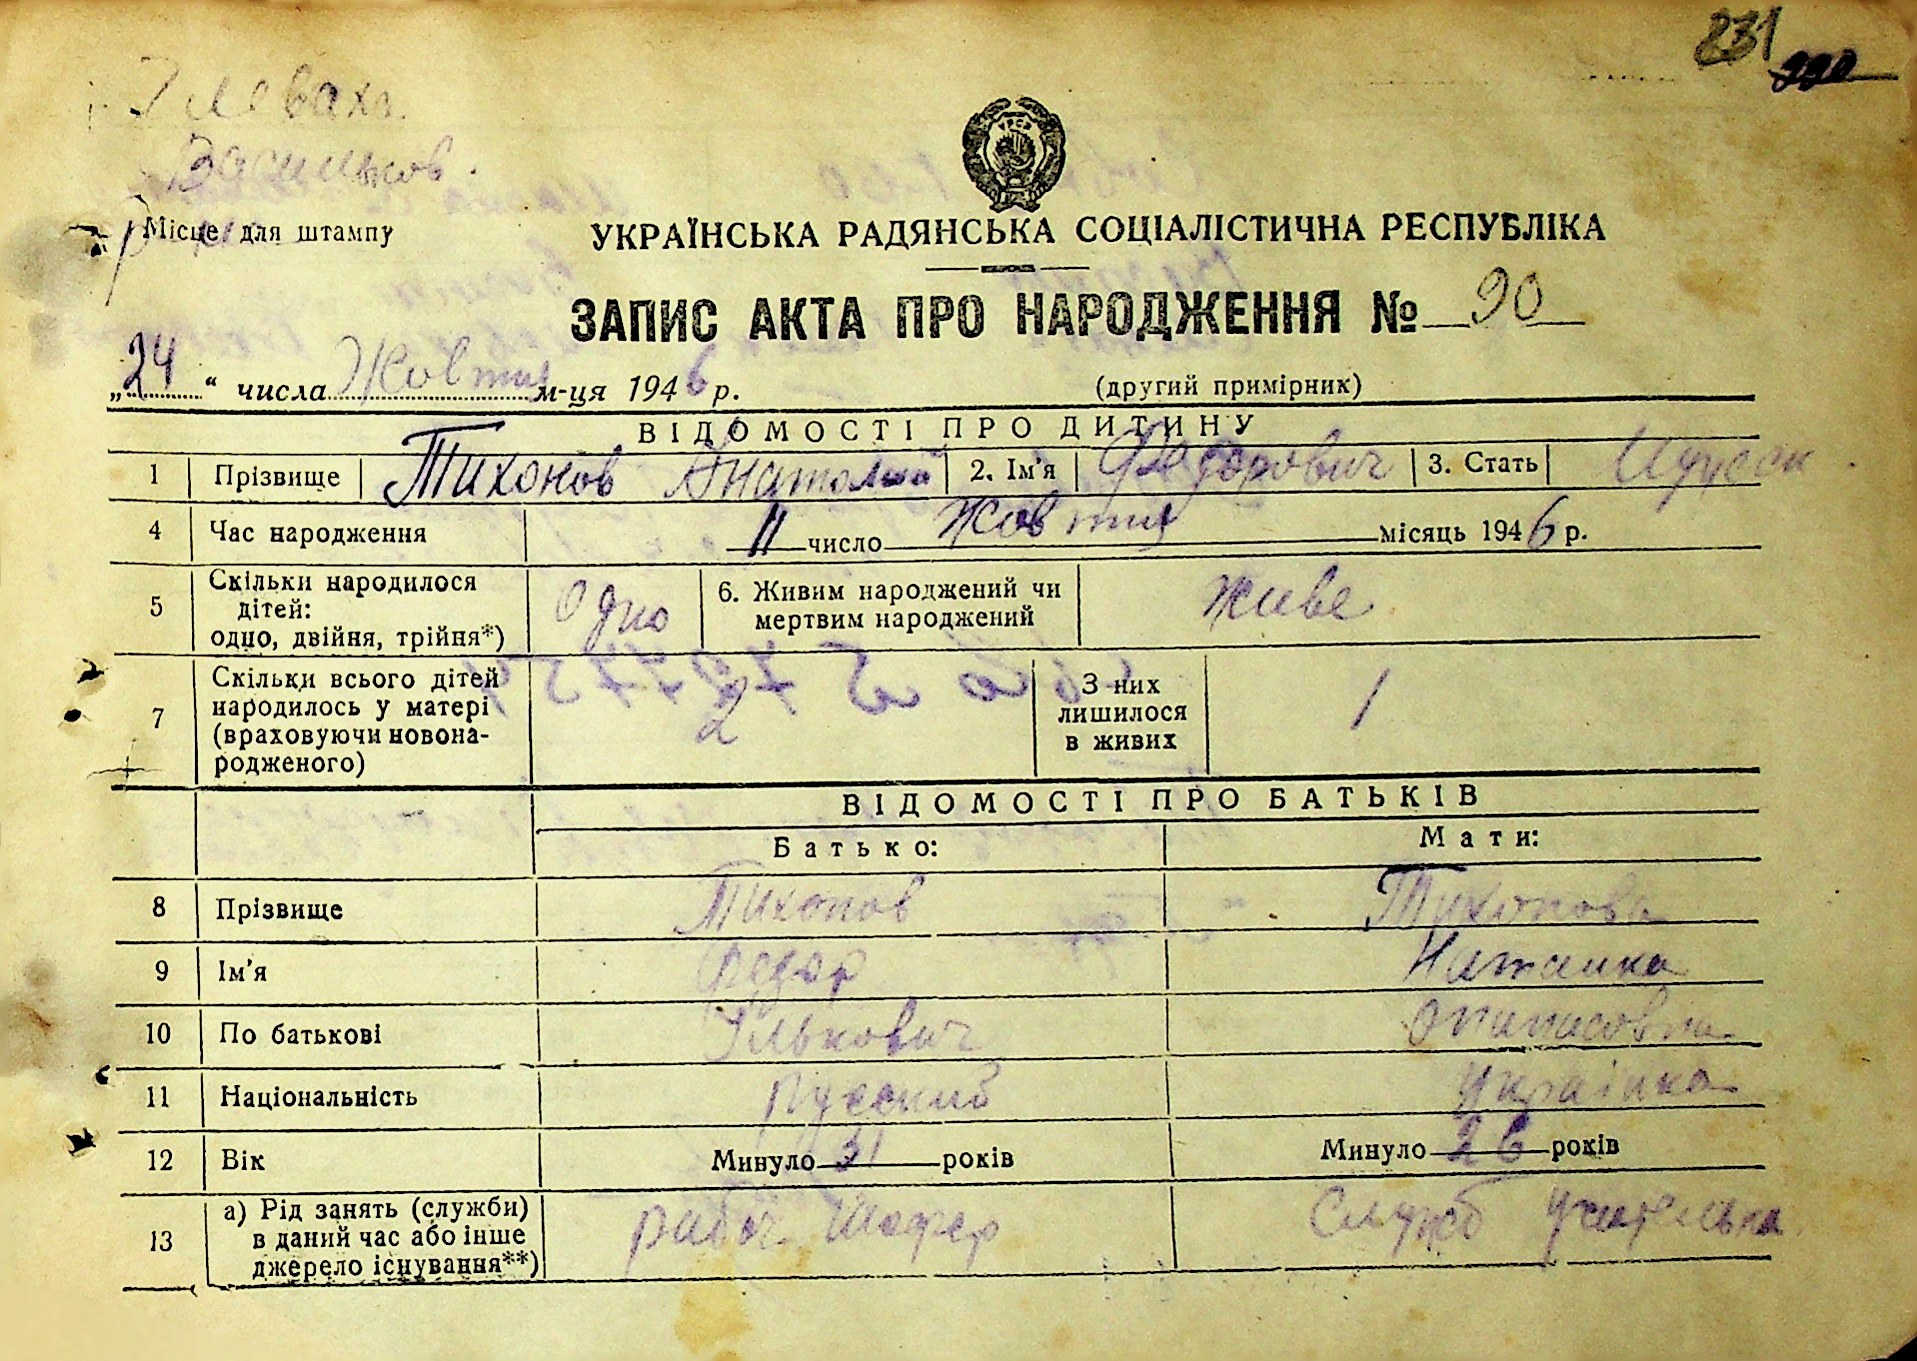 231
Глеваха
Васильков.
Місце для штампу
УРСР
УКРАЇНСЬКА РАДЯНСЬКА СОЦІАЛІСТИЧНА РЕСПУБЛІКА
ЗАПИС АКТА ПРО НАРОДЖЕННЯ № 90
„24“ числа Жовтня м-ця 1946 р. (другий примірник)
ВІДОМОСТІ ПРО ДИТИНУ
1 Прізвище Тихонов Анатолий 2. Ім'я Федорович 3. Стать
4 Час народження 11 число Жовтня місяць 1946 р.
5 Скільки народилося дітей: одно, двійня, трійня*) Одно 6. Живим народжений чи мертвим народжений живе
7 Скільки всього дітей народилось у матері (враховуючи новонародженого) 2 З них лишилося в живих 1
ВІДОМОСТІ ПРО БАТЬКІВ
Батько: Мати:
8 Прізвище Тихонов Тихонова
9 Ім'я Федор Наталка
10 По батькові Ількович Опанасовна
11 Національність русский українка
12 Вік Минуло 31 років Минуло 26 років
13 а) Рід занять (служби) в даний час або інше джерело існування**) рабоч. шофер служб учителька